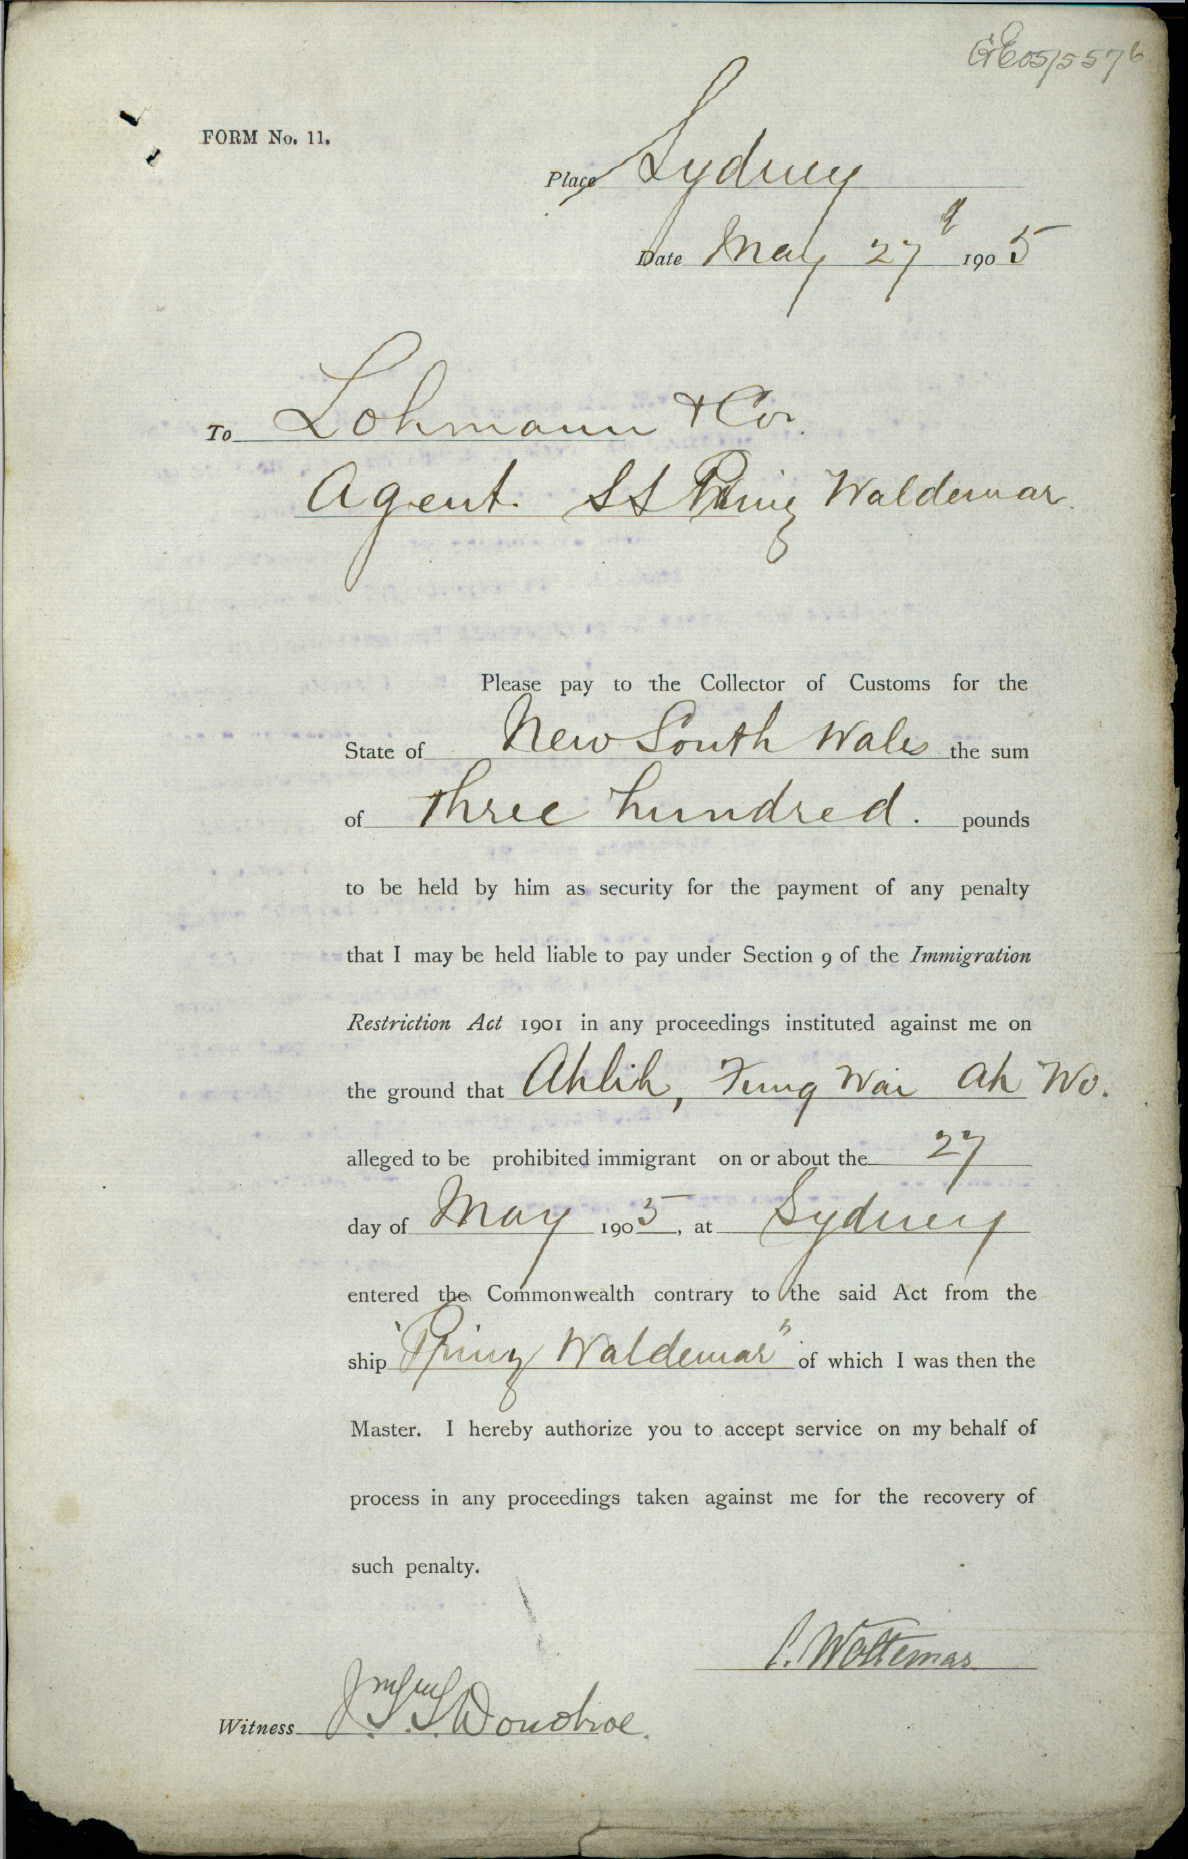 05/5576
FORM No. 11.
Place Sydney
Date May 27 1905
To Lohmann & Co.
Agent. SS Prinz Waldemar.
Please pay to the Collector of Customs for the
State of New South Wales the sum
of three hundred. pounds
to be held by him as security for the payment of any penalty
that I may be held liable to pay under Section 9 of the Immigration
Restriction Act 1901 in any proceedings instituted against me on
the ground that Ahlik, Fung Wai Ah Wo.
alleged to be prohibited immigrant on or about the 27
day of May 1905, at Sydney
entered the Commonwealth contrary to the said Act from the
ship "Prinz Waldemar" of which I was then the
Master. I hereby authorize you to accept service on my behalf of
process in any proceedings taken against me for the recovery of
such penalty.
C. Woltemas
Witness Donohoe.